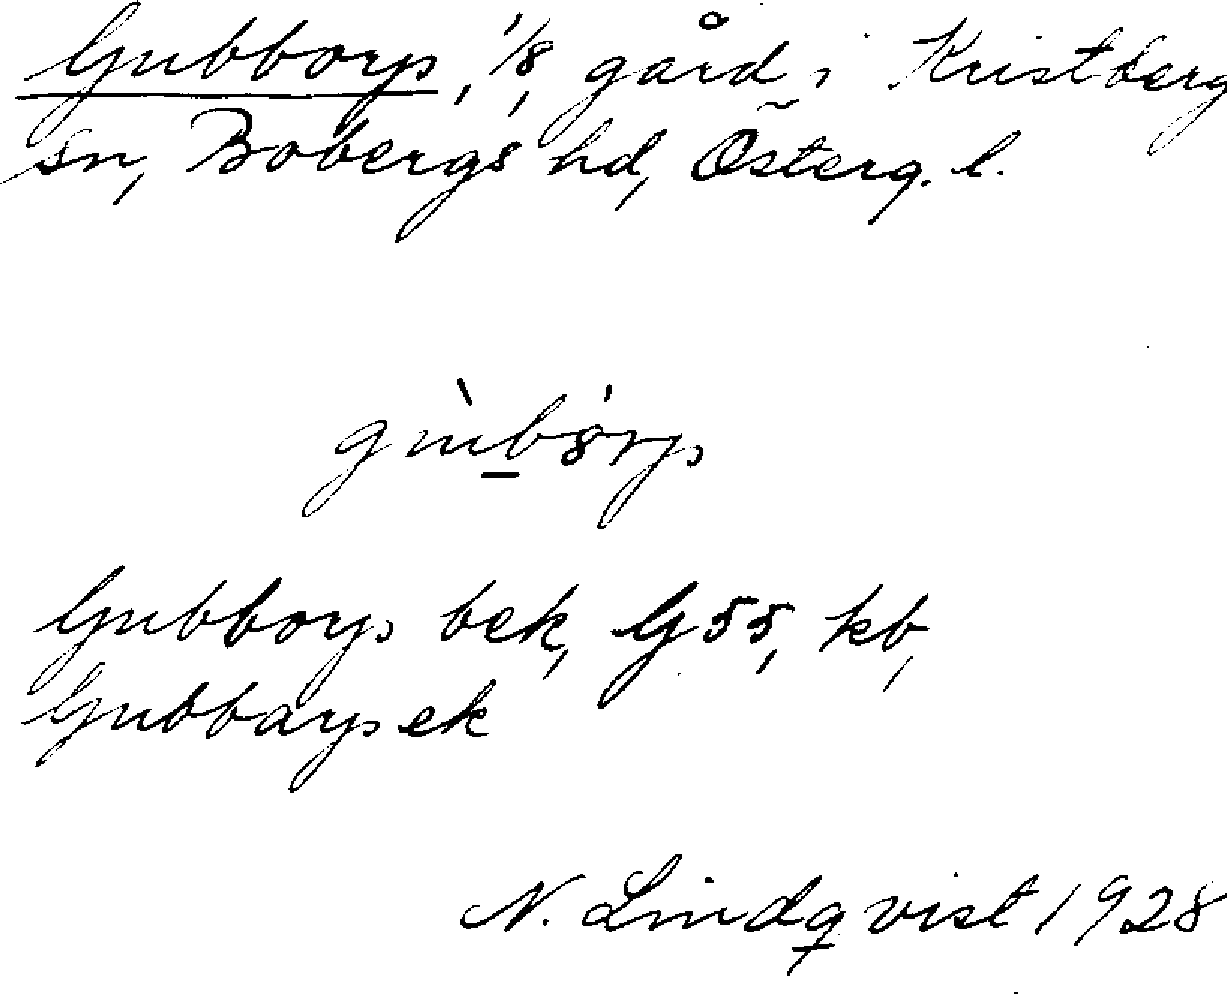 Gubborp, 1/8, gård i Kristberg
sn, Bobergs hd, Österg. l.
Gubborps bek, G55, kb,
Gubbarp ek
N. Lindqvist 1928